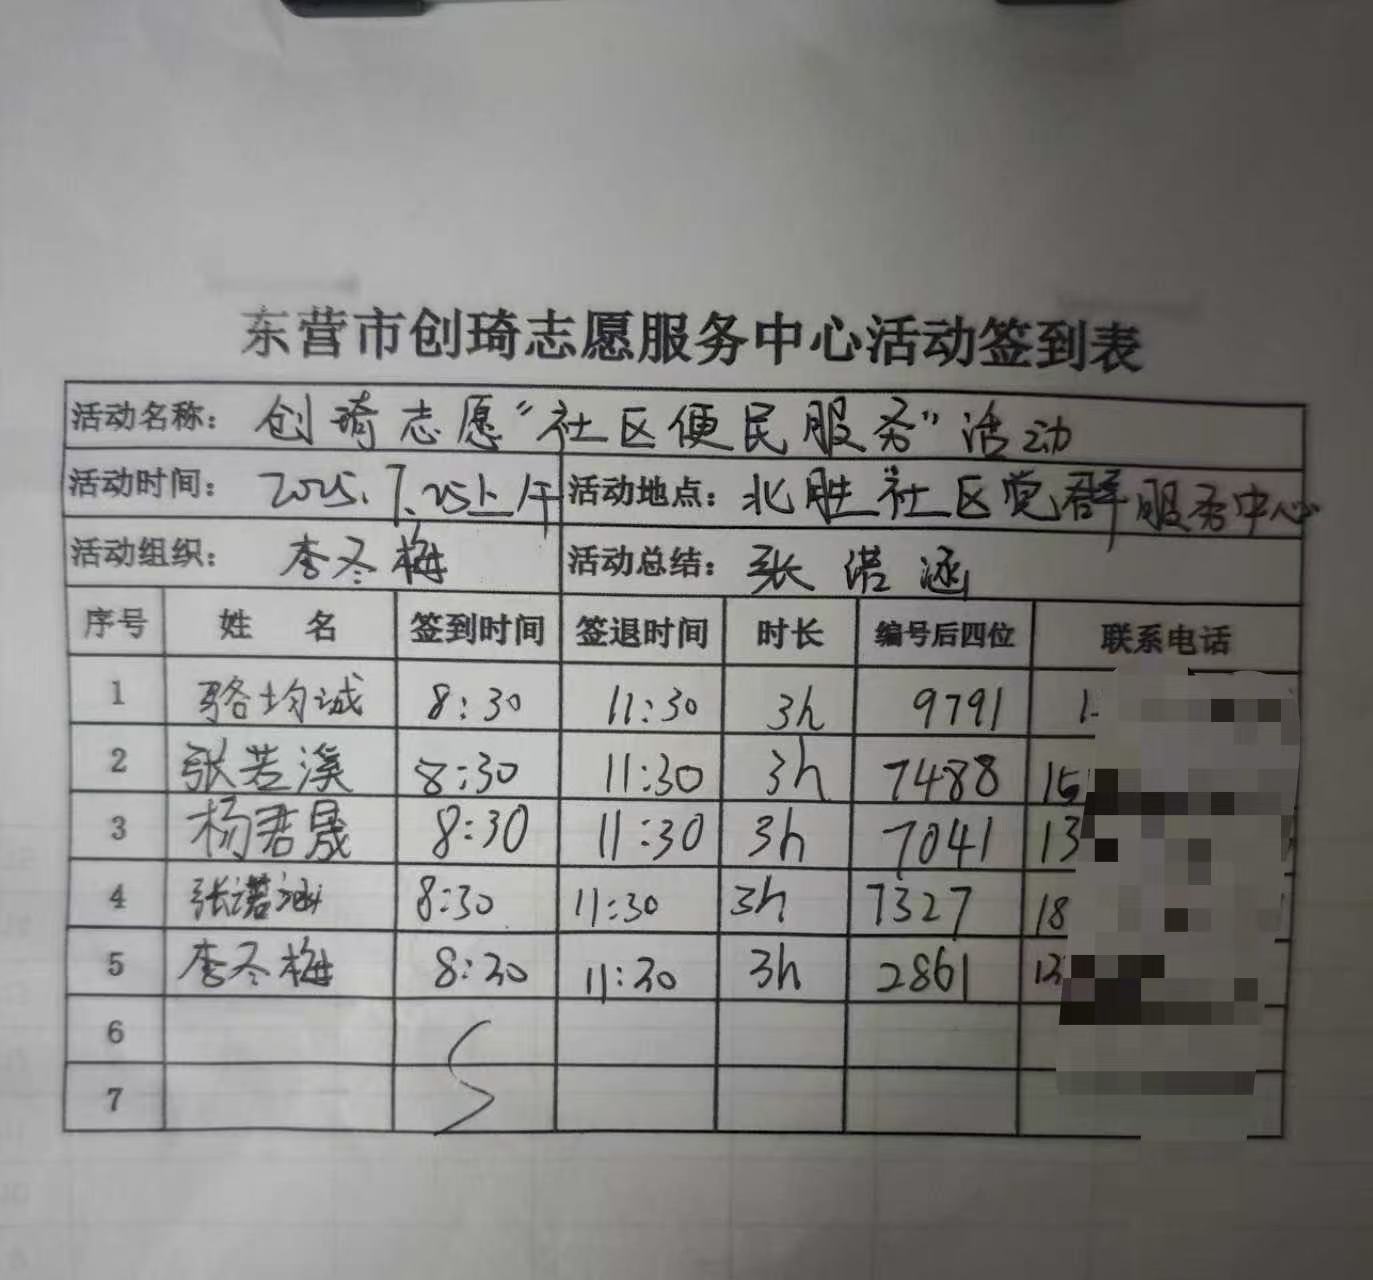 东营市创琦志愿服务中心活动签到表
活动名称: 创琦志愿“社区便民服务”活动
活动时间: 2025.7.25上午 活动地点: 北胜社区党群服务中心
活动组织: 李冬梅 活动总结: 张诺涵
序号 姓 名 签到时间 签退时间 时长 编号后四位 联系电话
1 骆均诚 8:30 11:30 3h 9791 1
2 张若溪 8:30 11:30 3h 7488 15
3 杨君晟 8:30 11:30 3h 7041 13
4 张诺涵 8:30 11:30 3h 7327 18
5 李冬梅 8:30 11:30 3h 2861 13
6
7